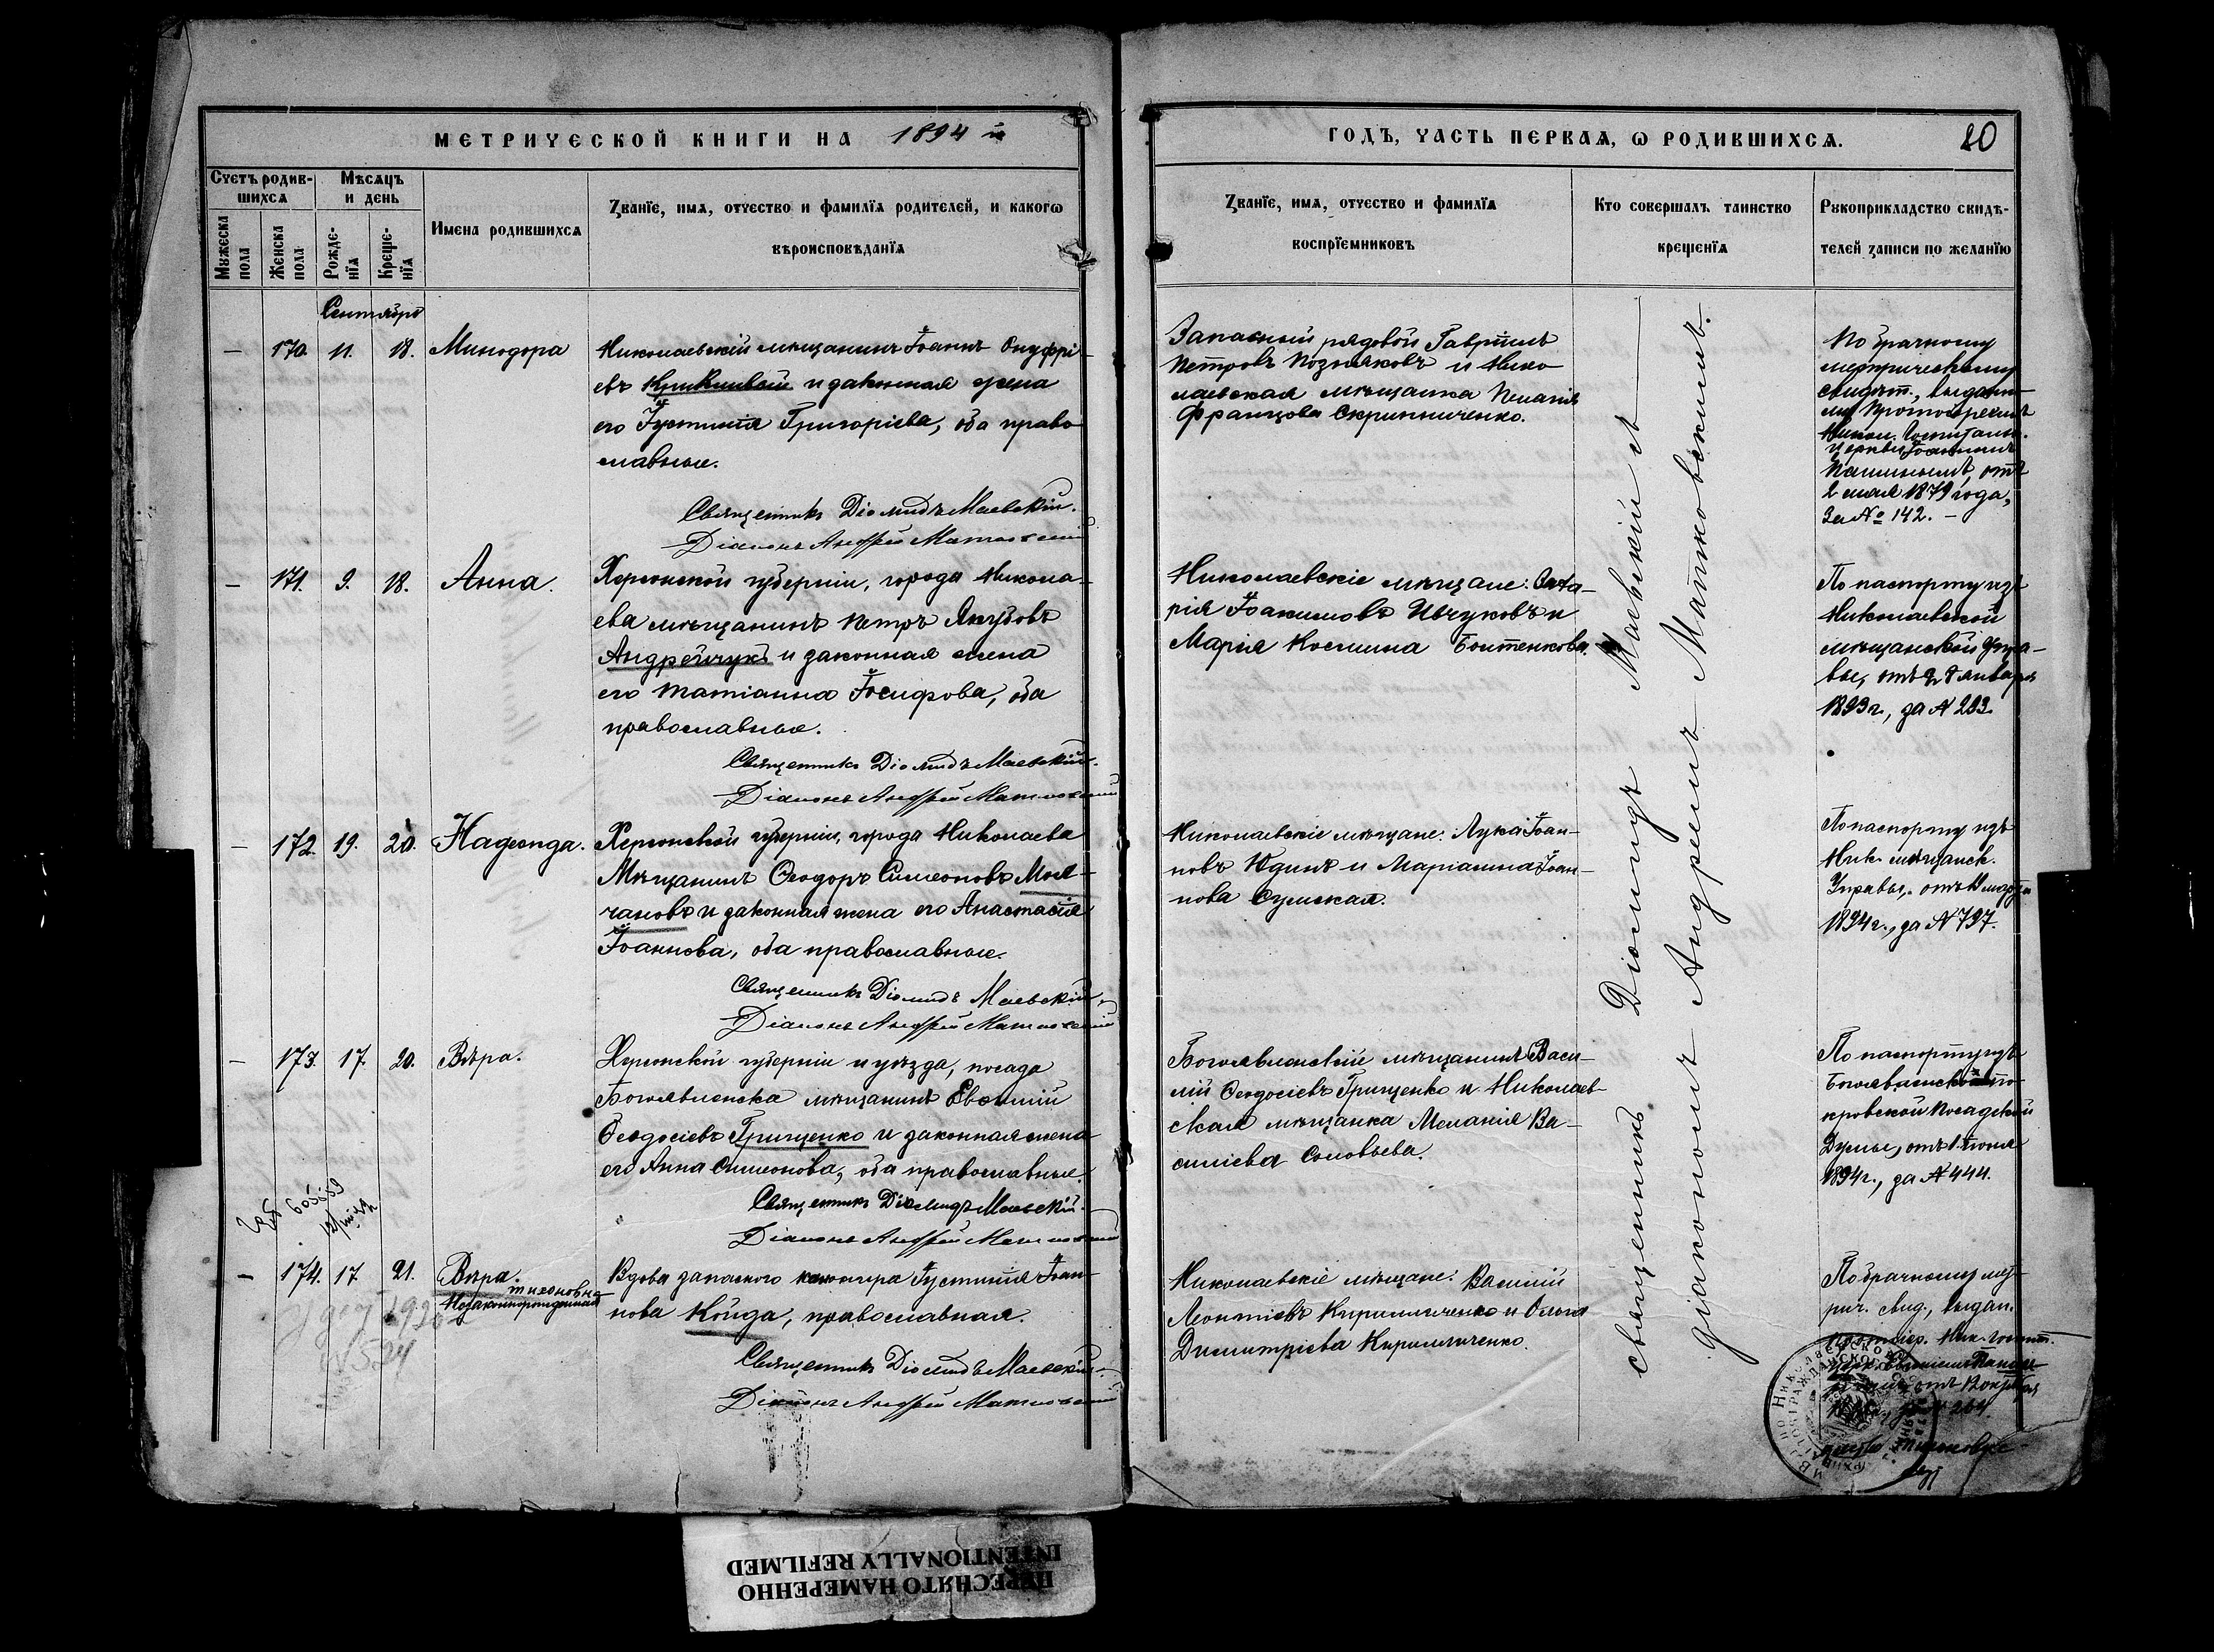 МЕТРИЧЕСКОЙ КНИГИ НА 1894 й
ГОДЪ, ЧАСТЬ ПЕРВАЯ, Ѡ РОДИВШИХСЯ.
20
Счетъ родив-
шихся
Мѣсяцъ
и день
Мужеска
пола
Женска
пола
Рожде-
нїя
Креще-
нїя
Имена родившихся
Званїе, имя, отчество и фамилїя родителей, и какогѡ
вѣроисповѣданїя
Званїе, имя, отчество и фамилїя
воспрїемниковъ
Кто совершалъ таинство
крещенїя
Рукоприкладство свидѣ-
телей записи по желанїю
Сентября
— 170. 11. 18. Минодора
Николаевскій мѣщанинъ Іоаннъ Онуфрі-
евъ и законная жена
его Іустинія Григоріева, оба право
славные.
Священникъ Діомидъ Маевскій.
Діаконъ Андрей Матковскій
Запасный рядовой Гавріилъ
Петровъ Позняковъ и Нико
лаевская мѣщанка
Францова Скрипниченко.
По брачному
метрическому
свидѣт., выданно
му Протоіереемъ
Никол. Госпитальн.
церкви Іоанномъ
отъ
2 мая 1879 года,
за № 142. —
— 171. 9. 18. Анна.
Херсонской губерніи, города Никола-
ева мѣщанинъ Петръ Якубовъ
Андрейчукъ и законная жена
его Татіанна Іосифова, оба
православные.
Священникъ Діомидъ Маевскій.
Діаконъ Андрей Матковскій
Николаевскіе мѣщане: Заха-
рія Іоакимовъ Ивчуковъ и
Марія Космина Боитенкова.
По паспорту изъ
Николаевской
мѣщанской Упра-
вы, отъ января
1893 г., за № 293.
— 172. 19. 20. Надежда.
Херсонской губерніи, города Николаева
Мѣщанинъ Ѳеодоръ Симеоновъ Мол-
чановъ и законная жена его Анастасія
Іоаннова, оба православные.
Священникъ Діомидъ Маевскій.
Діаконъ Андрей Матковскій
Николаевскіе мѣщане: Лука Іоан-
новъ Юдинъ и Маріанна Іоан-
нова Сумская.
По паспорту изъ
Ник. мѣщанск.
Управы, отъ марта
1894 г., за № 797.
— 173. 17. 20. Вѣра.
Херсонской губерніи и уѣзда, посада
Богоявленска мѣщанинъ Евѳимій
Ѳеодосіевъ Грищенко и законная жена
его Анна Симеонова, оба православные.
Священникъ Діомидъ Маевскій.
Діаконъ Андрей Матковскій
Богоявленскій мѣщанинъ Васи-
лій Ѳеодосіевъ Грищенко и Николаев-
ская мѣщанка Меланія Ва-
силіева Соловьева.
По паспорту изъ
Богоявленской По-
кровской Посадской
Думы, отъ 1 Іюня
1894 г., за № 444.
— 174. 17. 21. Вѣра.
Тихоновна
Незаконнорожденная
Вдова запасного канонира Іустинія Іоан-
нова Койда, православная.
Священникъ Діомидъ Маевскій.
Діаконъ Андрей Матковскій
Николаевскіе мѣщане: Василій
Леонтіевъ Кириличенко и Ольга
Димитріева Кириличенко.
По брачному мет-
рич. свид., выдан.
протоіер. Ник. госпит.
Священникъ Діомидъ Маевскій съ
діакономъ Андреемъ Матковскимъ.
ПЕРЕСНЯТО НАМЕРЕННО
INTENTIONALLY REFILMED